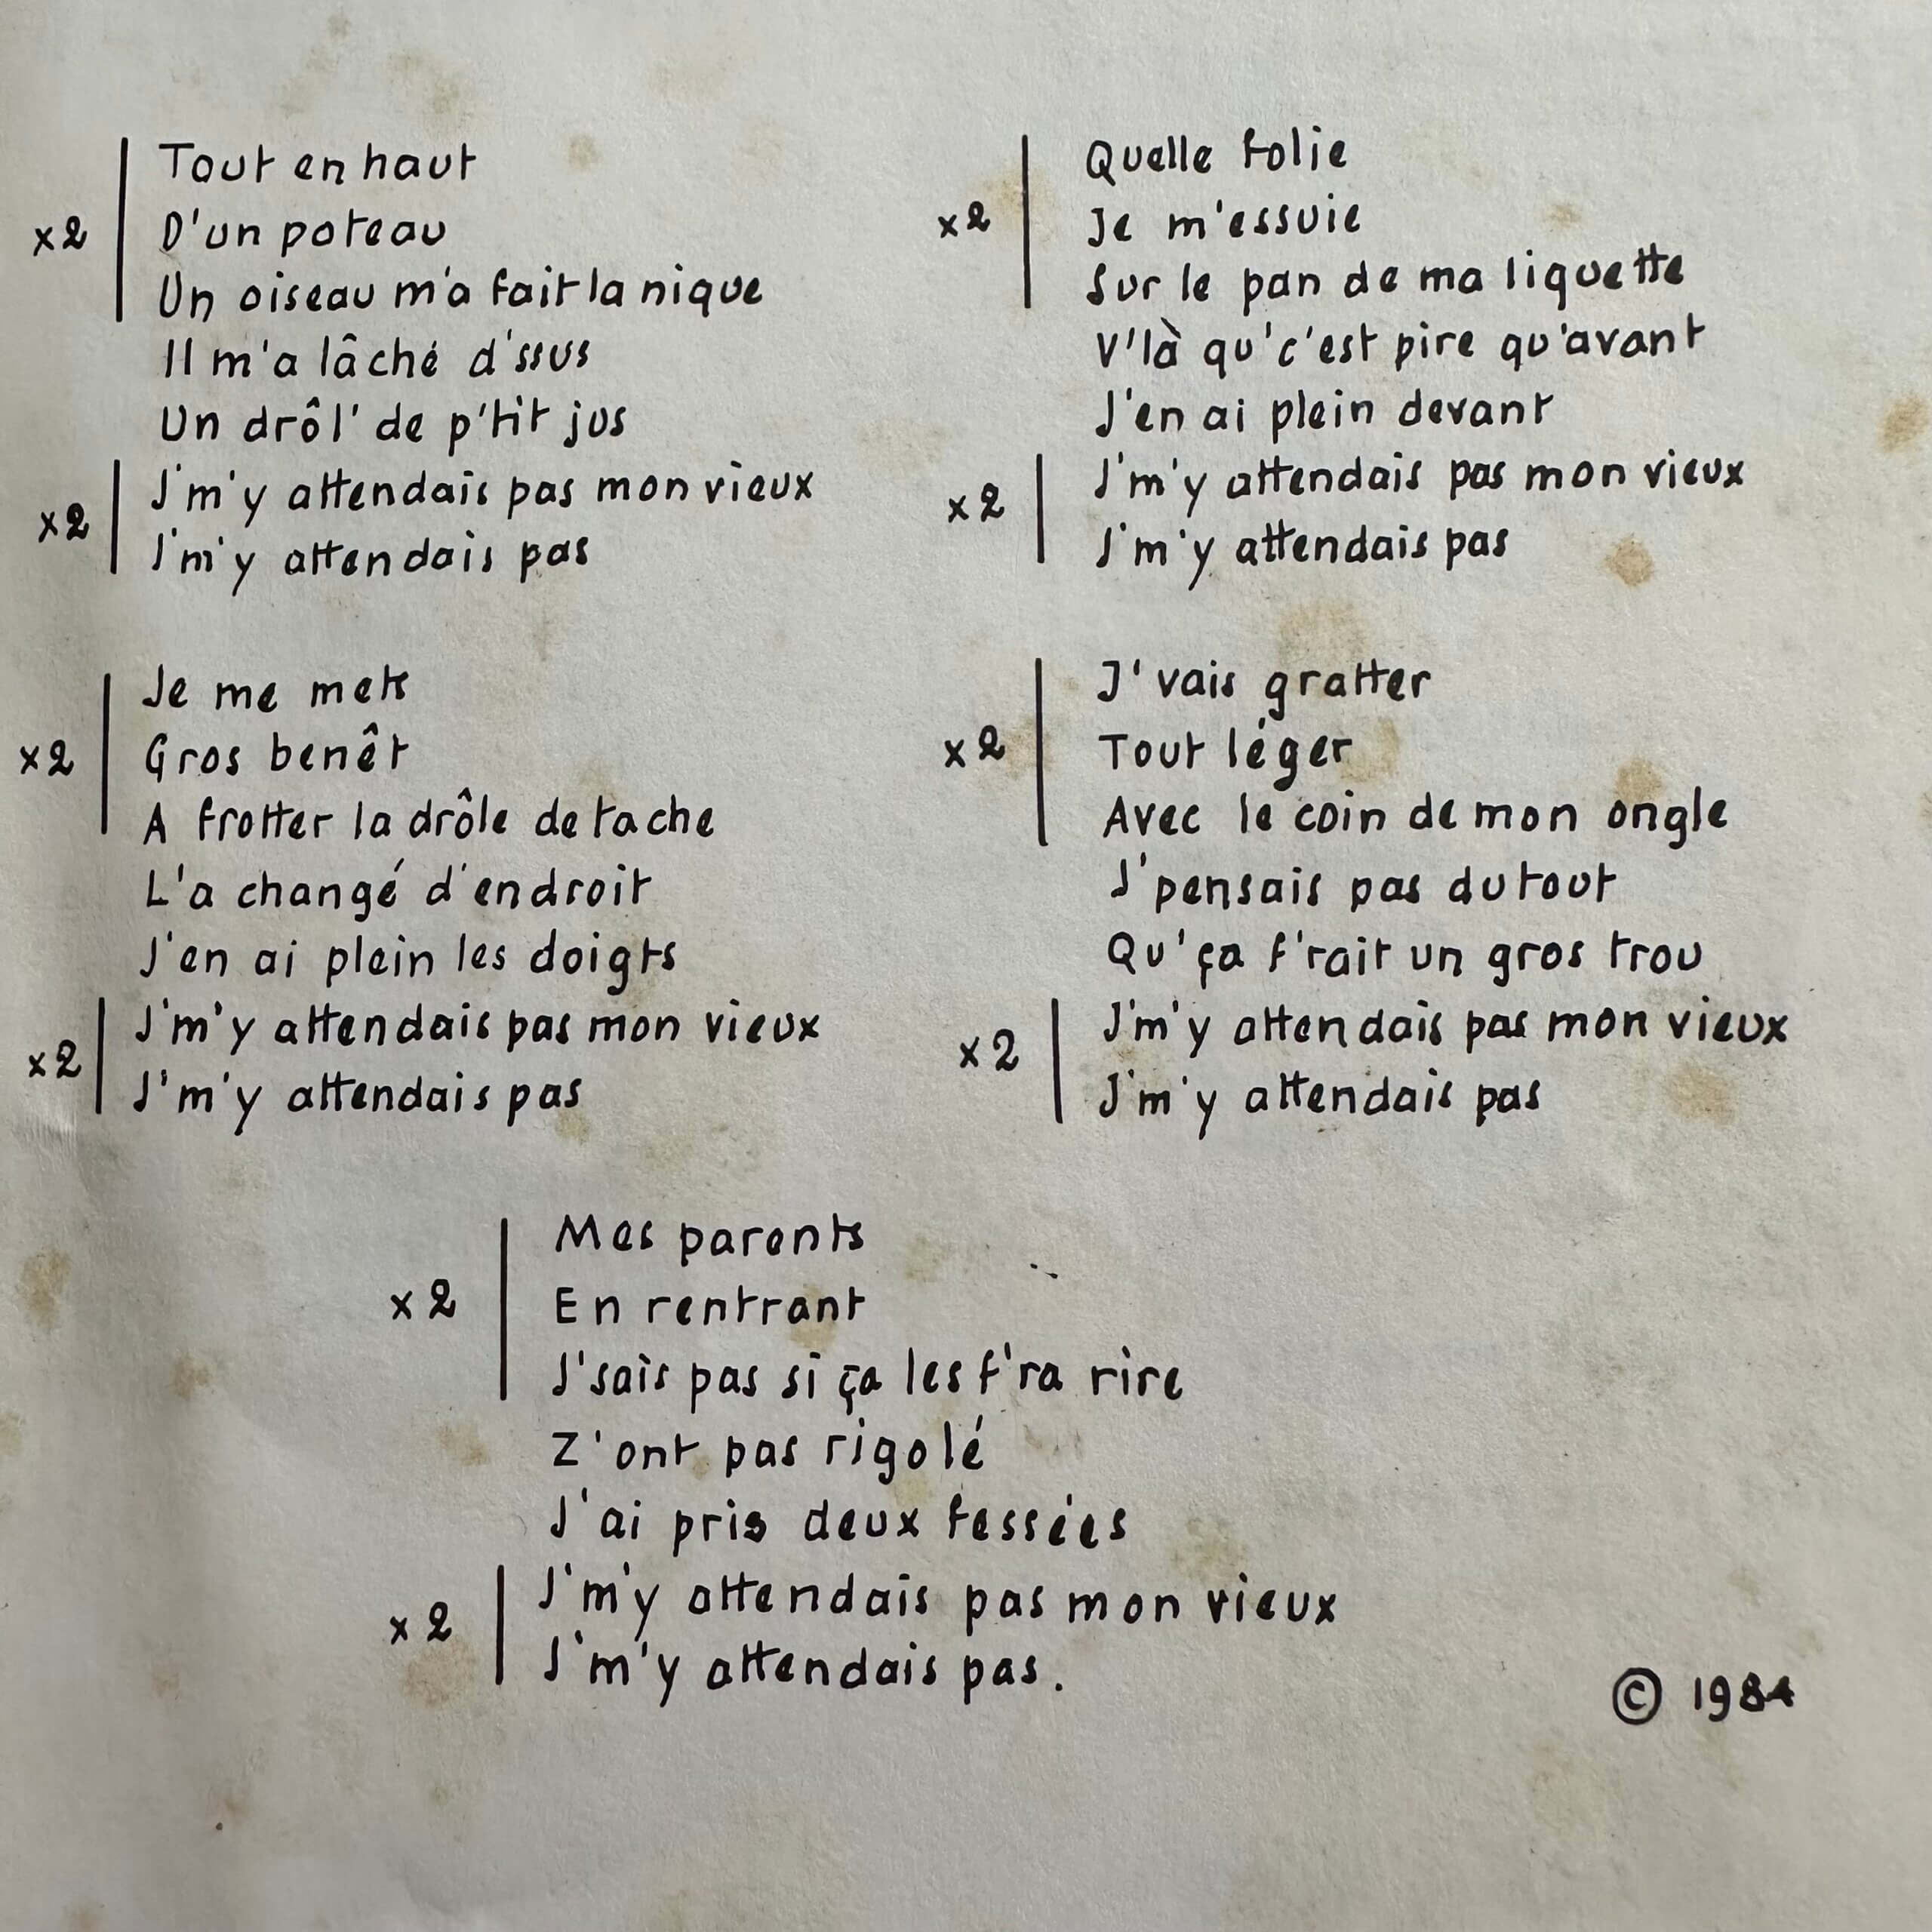 Tout en haut
x2 D'un poteau
Un oiseau m'a fait la nique
Il m'a lâché d'ssus
Un drôl' de p'tit jus
x2 J'm'y attendais pas mon vieux
J'm'y attendais pas
Je me mets
x2 Gros benêt
A frotter la drôle de tache
L'a changé d'endroit
J'en ai plein les doigts
x2 J'm'y attendais pas mon vieux
J'm'y attendais pas
Quelle folie
x2 Je m'essuie
Sur le pan de ma liquette
V'là qu'c'est pire qu'avant
J'en ai plein devant
x2 J'm'y attendais pas mon vieux
J'm'y attendais pas
J'vais gratter
x2 Tout léger
Avec le coin de mon ongle
J'pensais pas du tout
Qu'ça f'rait un gros trou
x2 J'm'y attendais pas mon vieux
J'm'y attendais pas
Mes parents
x2 En rentrant
J'sais pas si ça les f'ra rire
Z'ont pas rigolé
J'ai pris deux fessées
x2 J'm'y attendais pas mon vieux
J'm'y attendais pas.
© 1984